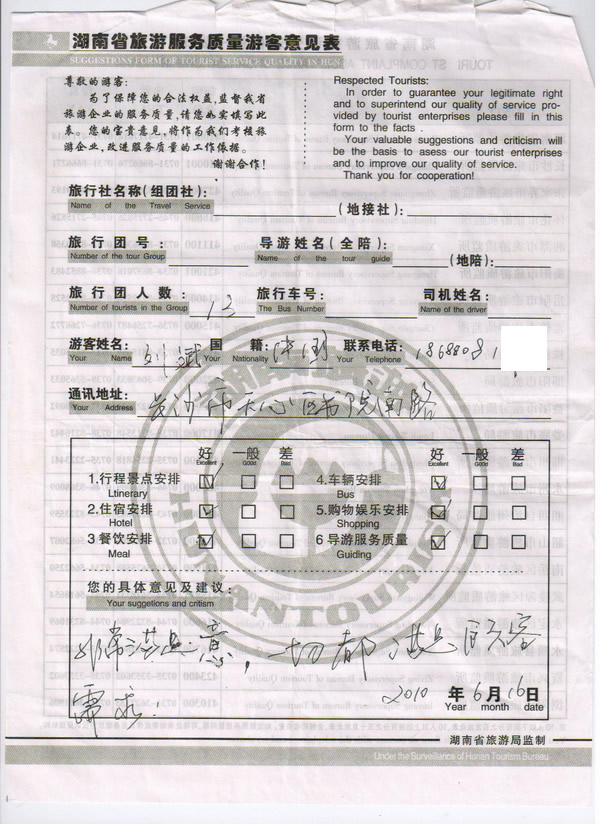 湖南省旅游服务质量游客意见表
SUGGESTIONS FORM OF TOURIST SERVICE QUALITY IN HUN
尊敬的游客:
为了保障您的合法权益,监督我省
旅游企业的服务质量,请您如实填写此
表。您的宝贵意见,将作为我们考核旅
游企业,改进服务质量的工作依据。
谢谢合作!
Respected Tourists:
In order to guarantee your legitimate right
and to superintend our quality of service pro-
vided by tourist enterprises please fill in this
form to the facts .
Your valuable suggestions and criticism will
be the basis to asess our tourist enterprises
and to improve our quality of service.
Thank you for cooperation!
旅行社名称(组团社): (地接社):
Name of the Travel Service
旅行团号: 导游姓名(全陪): (地陪):
Number of the tour Group Name of the tour guide
旅行团人数: 13 旅行车号: 司机姓名:
Number of tourists in the Group The Bus Number Name of the driver
游客姓名: 刘斌 国籍: 中国 联系电话: 18688081
Your Name Your Nationality Your Telephone
通讯地址: 长沙市天心区书院南路
Your Address
好 一般 差 好 一般 差
Excellent Good Bad Excellent Good Bad
1.行程景点安排 4.车辆安排
Ltinerary Bus
2.住宿安排 5.购物娱乐安排
Hotel Shopping
3 餐饮安排 6 导游服务质量
Meal Guiding
HUNAN TOURISM
您的具体意见及建议:
Your suggetions and critism
非常满意,一切都满足顾客
需求.
2010 年 6 月 16 日
Year month date
湖南省旅游局监制
Under the Surveillance of Hunan Tourism Bureau